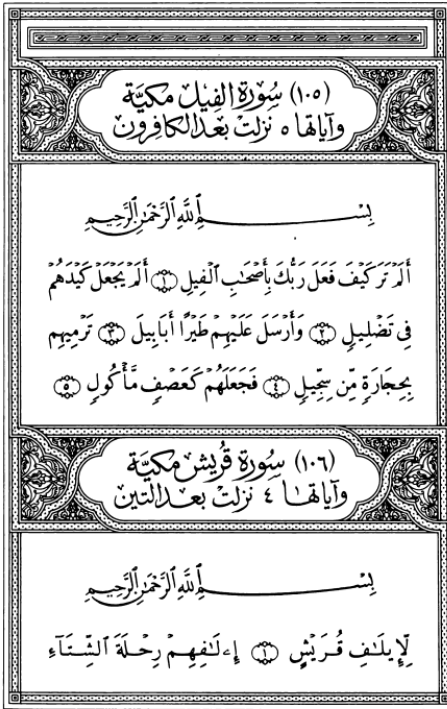 (١٠٥) سُورَةِ الفِيْلِ مَكيَّة
وَآيَاتهَا ٥ نَزلَتْ بَعدَ الكافِرونْ
بِسْمِ ٱللَّهِ ٱلرَّحْمَٰنِ ٱلرَّحِيمِ
أَلَمْ تَرَ كَيْفَ فَعَلَ رَبُّكَ بِأَصْحَٰبِ ٱلْفِيلِ ١ أَلَمْ يَجْعَلْ كَيْدَهُمْ
فِي تَضْلِيلٍ ٢ وَأَرْسَلَ عَلَيْهِمْ طَيْرًا أَبَابِيلَ ٣ تَرْمِيهِم
بِحِجَارَةٍ مِّن سِجِّيلٍ ٤ فَجَعَلَهُمْ كَعَصْفٍ مَّأْكُولٍ ٥
(١٠٦) سُورَة قُرِيش مَكيَّة
وَآيَاتهَا ٤ نَزلَتْ بَعدَ التين
بِسْمِ ٱللَّهِ ٱلرَّحْمَٰنِ ٱلرَّحِيمِ
لِإِيلَٰفِ قُرَيْشٍ ١ إِۦلَٰفِهِمْ رِحْلَةَ ٱلشِّتَآءِ